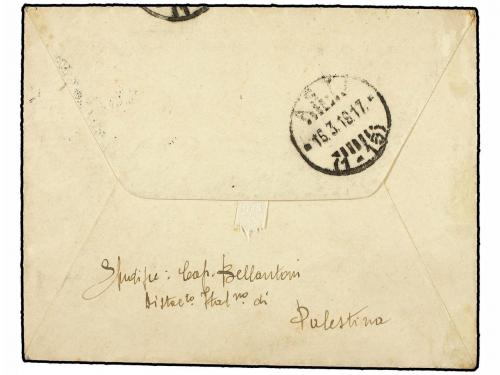 16.3.18.17.
Spedisce: Cap. Bellantoni
Distacco Italno di
Palestina